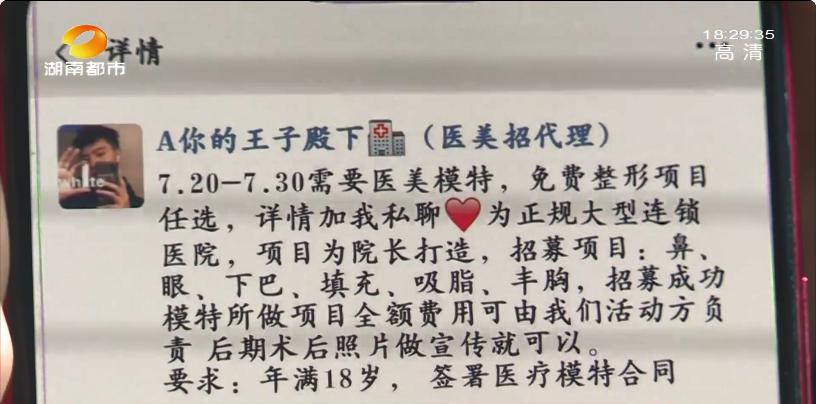 18:29:35
高清
湖南都市
详情
A你的王子殿下🏥（医美招代理）
white
7.20—7.30需要医美模特，免费整形项目
任选，详情加我私聊❤️为正规大型连锁
医院，项目为院长打造，招募项目：鼻、
眼、下巴、填充、吸脂、丰胸，招募成功
模特所做项目全额费用可由我们活动方负
责 后期术后照片做宣传就可以。
要求：年满18岁， 签署医疗模特合同